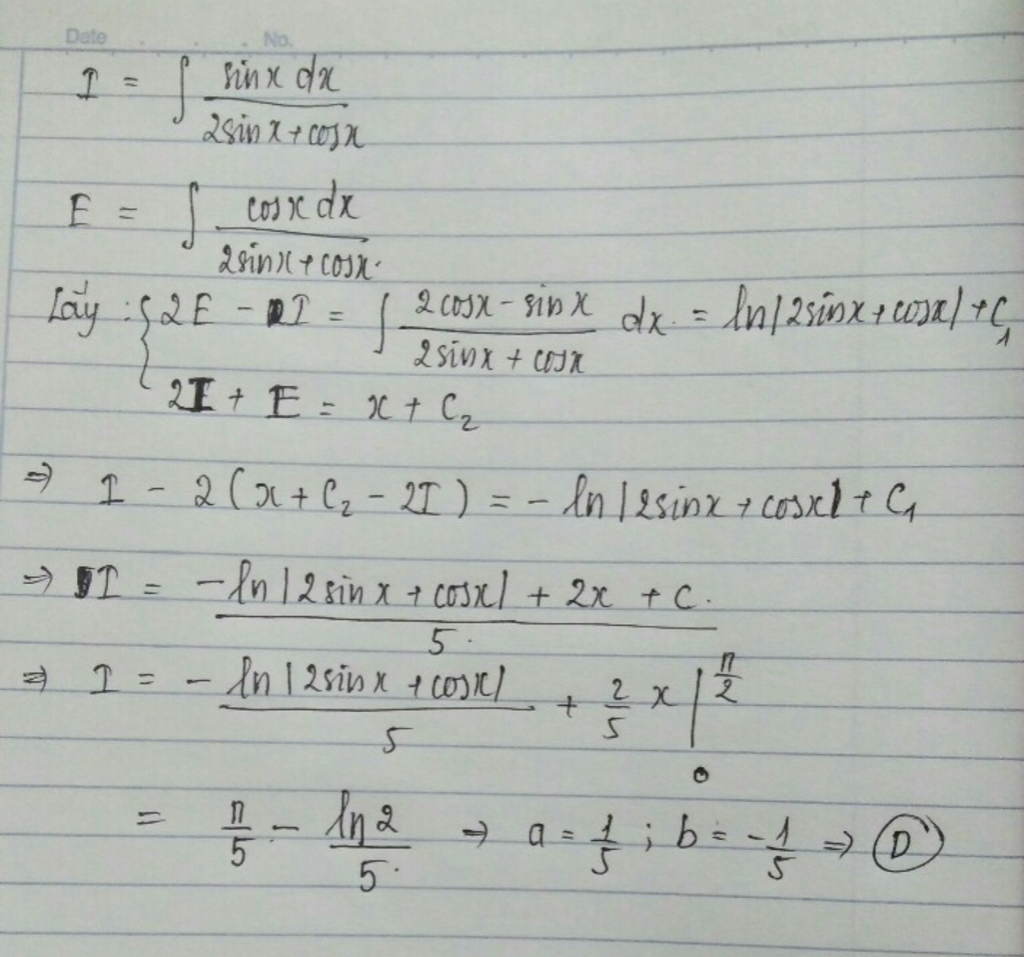 Date . . . No.
I = ∫ sinx dx / 2sinx + cosx
E = ∫ cosx dx / 2sinx + cosx.
Lấy : { 2E - I = ∫ 2cosx - sinx / 2sinx + cosx dx. = ln|2sinx + cosx| + C₁
2I + E = x + C₂
⇒ I - 2(x + C₂ - 2I) = -ln|2sinx + cosx| + C₁
⇒ I = -ln|2sinx + cosx| + 2x + C. / 5.
⇒ I = - ln|2sinx + cosx| / 5 + 2/5 x |₀^π/2
= π/5 - ln2/5. ⇒ a = 1/5 ; b = -1/5 ⇒ D